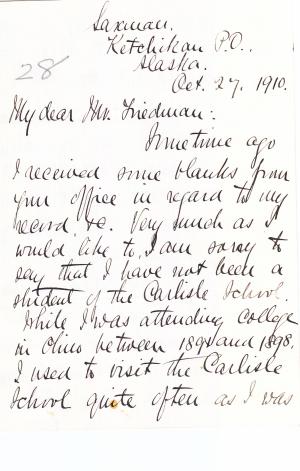 Saxman.
Ketchikan P.O.,
Alaska.
Oct. 27, 1910.
28
My dear Mr. Friedman:
Sometime ago
I received some blanks from
your office in regard to my
record, &c. Very much as I
would like to, I am sorry to
say that I have not been a
student of the Carlisle School.
While I was attending college
in Ohio between and 1898.
I used to visit the Carlisle
School quite often as I was